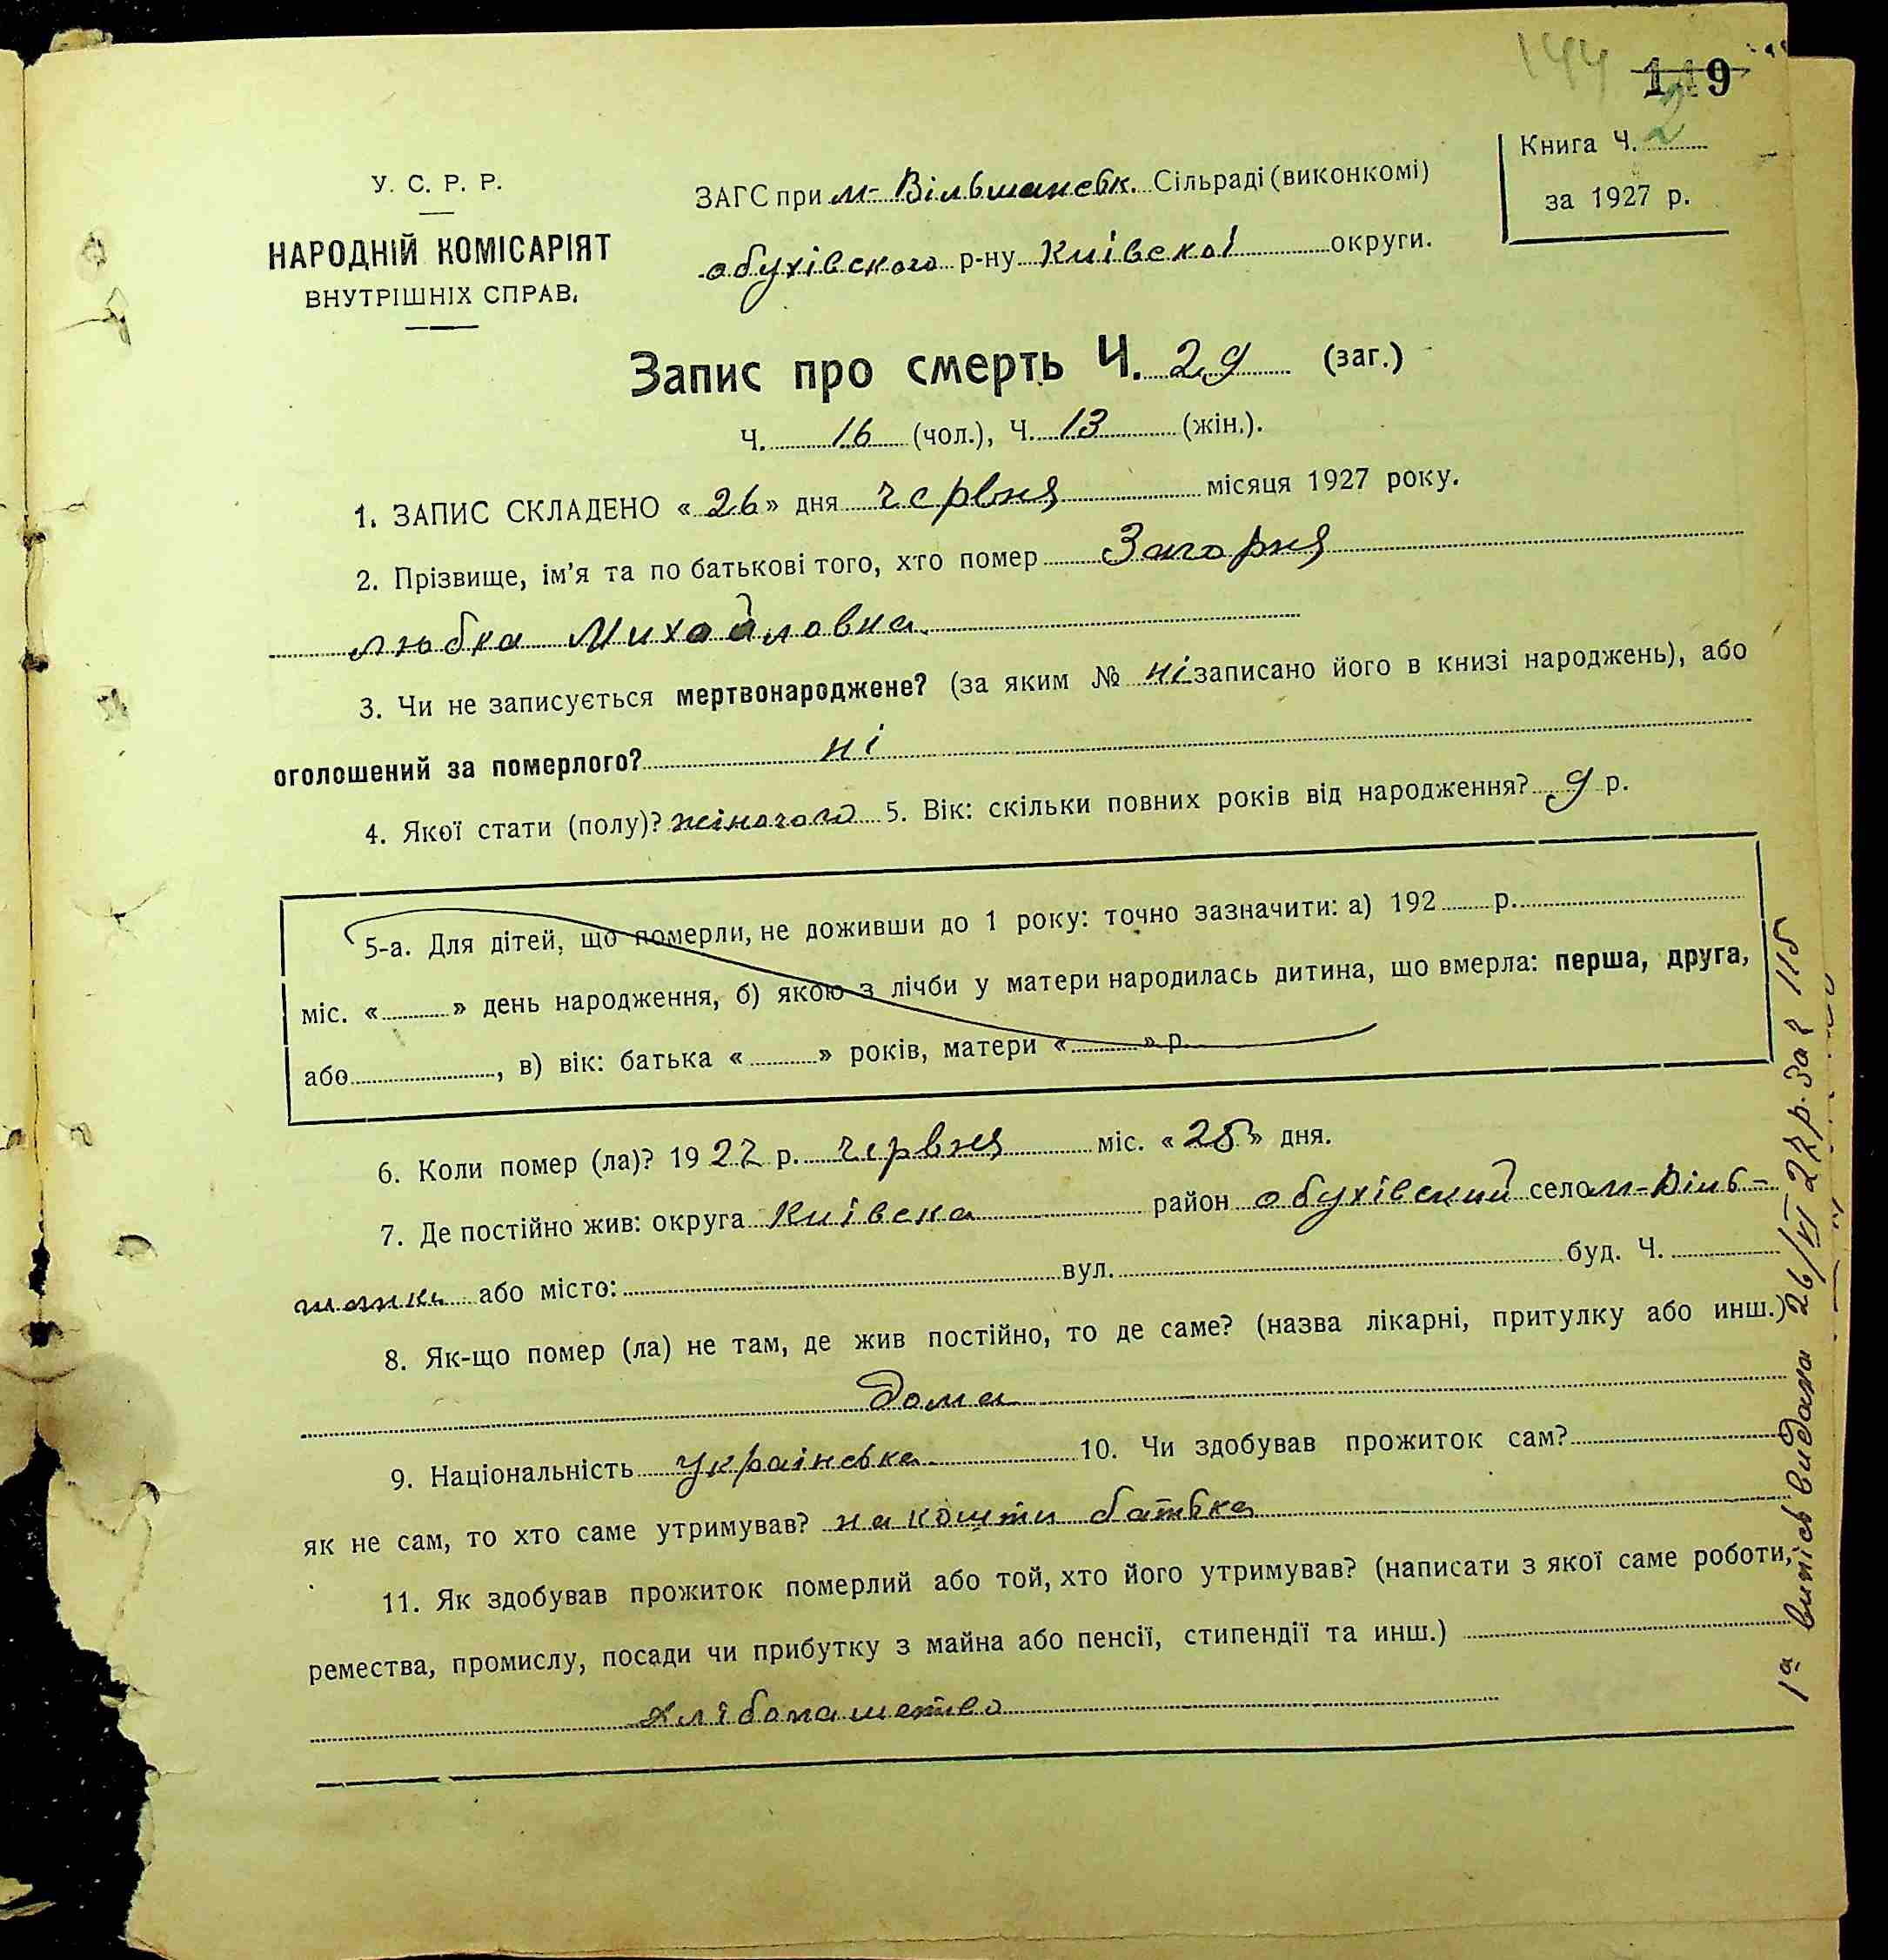 144 119
2
Книга Ч.
за 1927 р.
У. С. Р. Р.
НАРОДНІЙ КОМІСАРІЯТ
ВНУТРІШНІХ СПРАВ.
ЗАГС при м-Вільшанськ. Сільраді (виконкомі)
обухівского р-ну Київскої округи.
Запис про смерть Ч. 29 (заг.)
Ч. 16 (чол.), Ч. 13 (жін.).
1. ЗАПИС СКЛАДЕНО « 26 » дня червня місяця 1927 року.
2. Прізвище, ім’я та по батькові того, хто помер Загорня
любка Михайловна.
3. Чи не записується мертвонароджене? (за яким № ні записано його в книзі народжень), або
оголошений за померлого? ні
4. Якої стати (полу)? жіночого 5. Вік: скільки повних років від народження? 9 р.
5-а. Для дітей, що померли, не доживши до 1 року: точно зазначити: а) 192 р.
міс. « » день народження, б) якою з лічби у матери народилась дитина, що вмерла: перша, друга,
або , в) вік: батька « » років, матери « » р.
6. Коли помер (ла)? 1927 р. червня міс. « 25 » дня.
7. Де постійно жив: округа Київска район обухівский село м-Віль-
шанка або місто: вул. буд. Ч.
8. Як-що помер (ла) не там, де жив постійно, то де саме? (назва лікарні, притулку або инш.)
дома
9. Національність українська. 10. Чи здобував прожиток сам?
як не сам, то хто саме утримував? на кошти батька
11. Як здобував прожиток померлий або той, хто його утримував? (написати з якої саме роботи,
ремества, промислу, посади чи прибутку з майна або пенсії, стипендії та инш.)
хлібопашетво
1а випісь видана 26/VI 27 р. за № 115